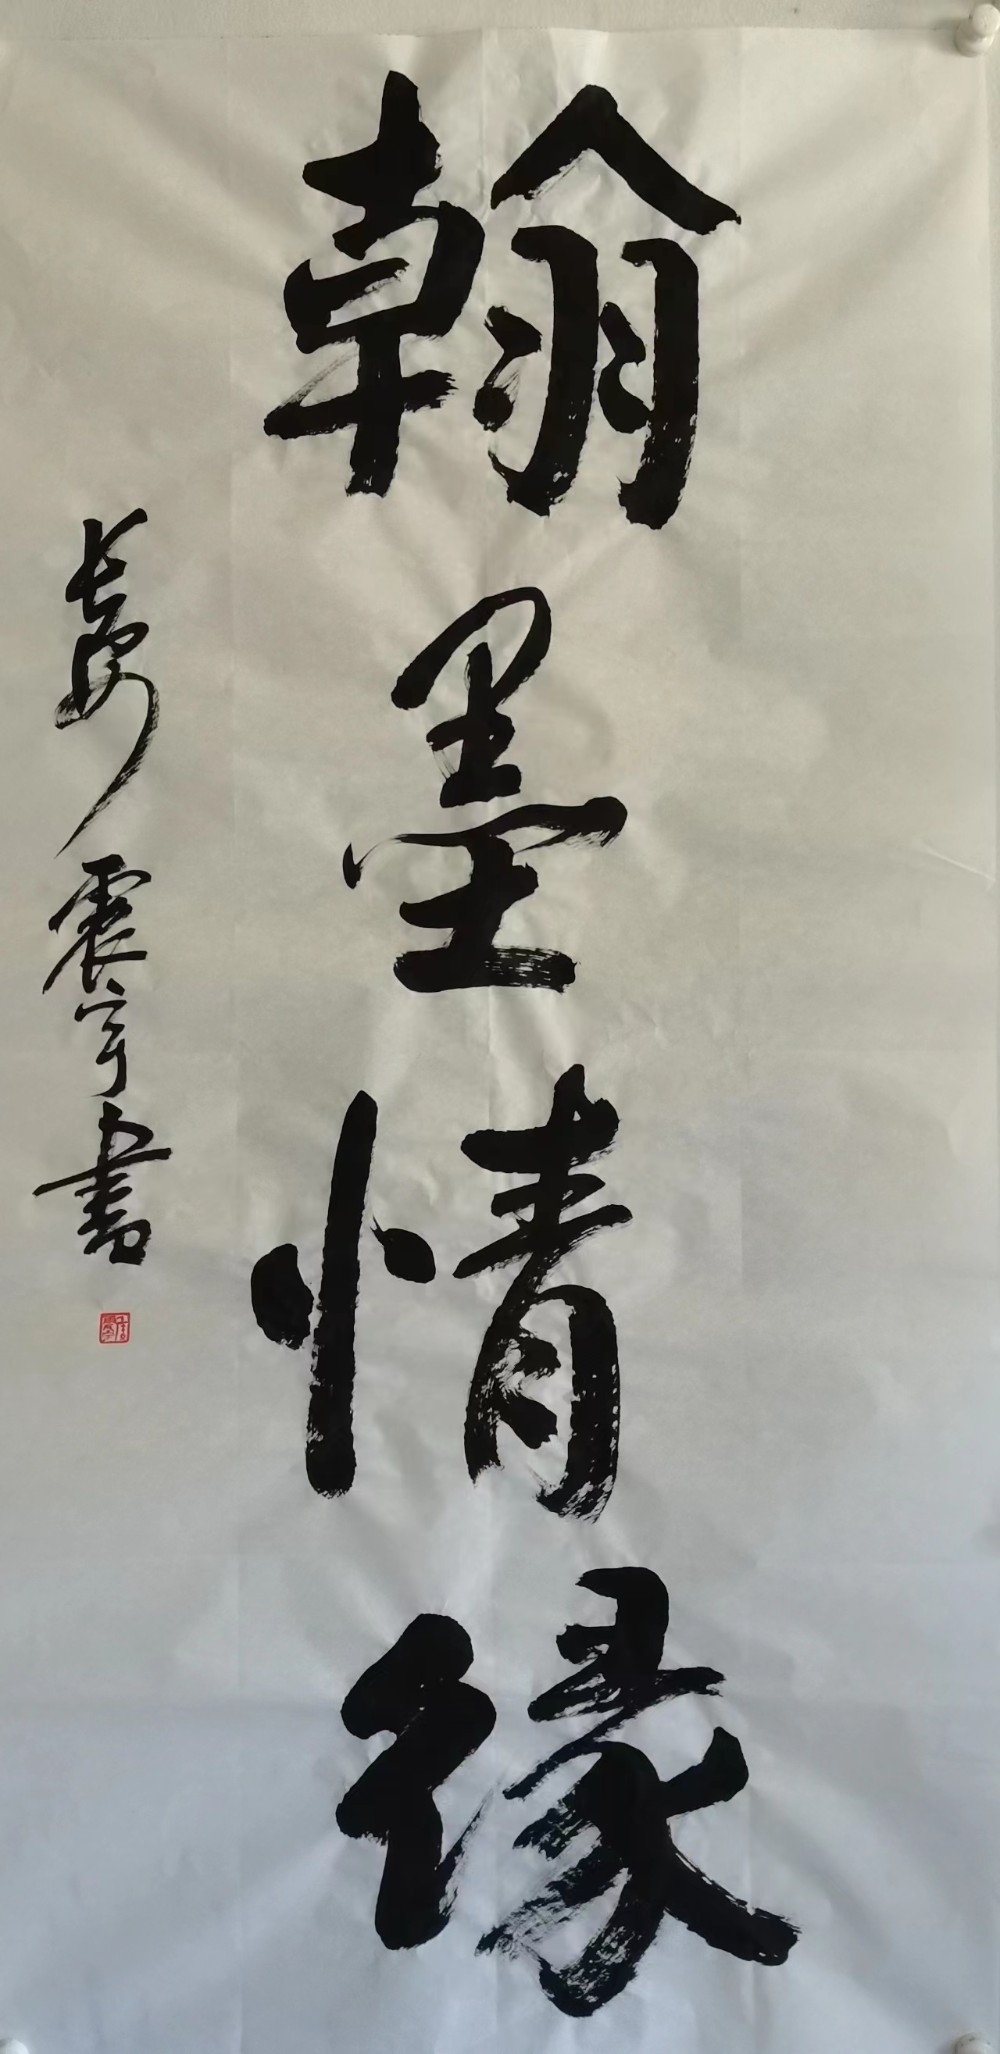 翰墨情缘
长安震宇書